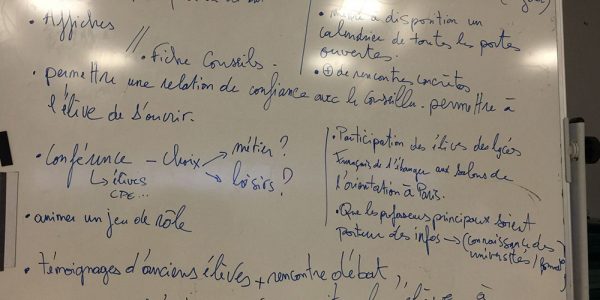 • Affiches
// Fiche Conseils.
• permettre une relation de confiance avec le Conseiller. permettre à
l'élève de s'ouvrir.
• Conférence – choix → métier ?
→ loisirs ?
↳ élèves
CPE...
• animer un jeu de rôle
• témoignages d'anciens élèves + rencontre débat
• mettre à disposition un
calendrier de toutes les portes
ouvertes.
• ⊕ de rencontres concrètes
• Participation des élèves des lycées
Français de l'étranger aux salons de
l'orientation à Paris.
• Que les professeurs principaux soient
porteurs des infos → (connaissance des
universités / format°)
l'élève à